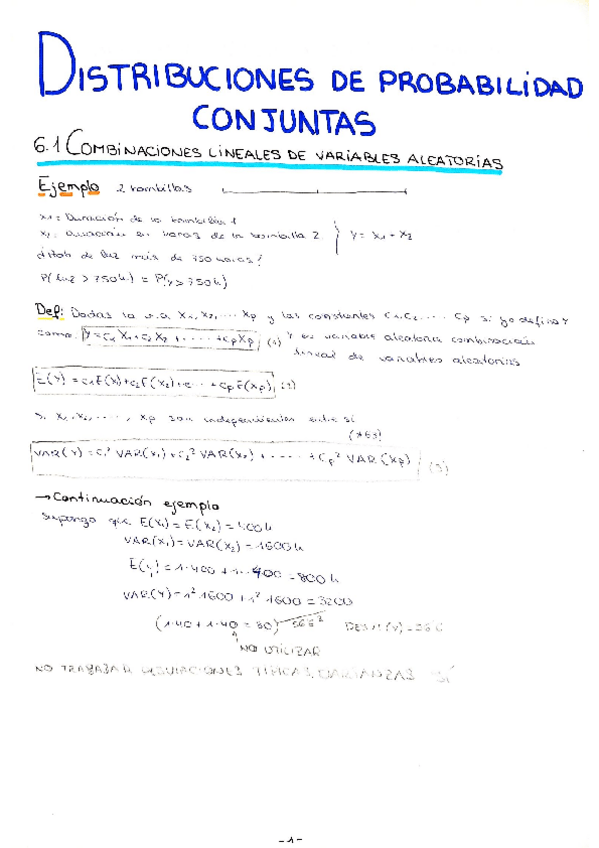 DISTRIBUCIONES DE PROBABILIDAD
CONJUNTAS
6.1 COMBINACIONES LINEALES DE VARIABLES ALEATORIAS
Ejemplo 2 bombillas
X1 = Duración de la bombilla 1
X2: duración en horas de la bombilla 2 } Y = X1 + X2
de luz más de 750 horas?
P(luz > 750h) = P(Y > 750h)
Def: Dadas la v.a X1, X2, ... Xp y las constantes C1, C2, ... Cp si yo defino Y
como Y = C1X1 + C2X2 + ..... + CpXp (1) Y es variable aleatoria combinación
lineal de variables aleatorias
E(Y) = C1E(X1) + C2E(X2) + ... + CpE(Xp) (2)
Si X1, X2, ...., Xp son independientes entre sí
VAR(Y) = C1² VAR(X1) + C2² VAR(X2) + ..... + Cp² VAR(Xp) (3)
→ Continuación ejemplo
Supongo que E(X1) = E(X2) = 400h
VAR(X1) = VAR(X2) = 1600h
E(Y) = 1·400 + 1·400 = 800h
VAR(Y) = 1² 1600 + 1² 1600 = 3200
(1·40 + 1·40 = 80)
NO UTILIZAR
NO TRABAJAR DESVIACIONES TÍPICAS, VARIANZAS SÍ
-1-